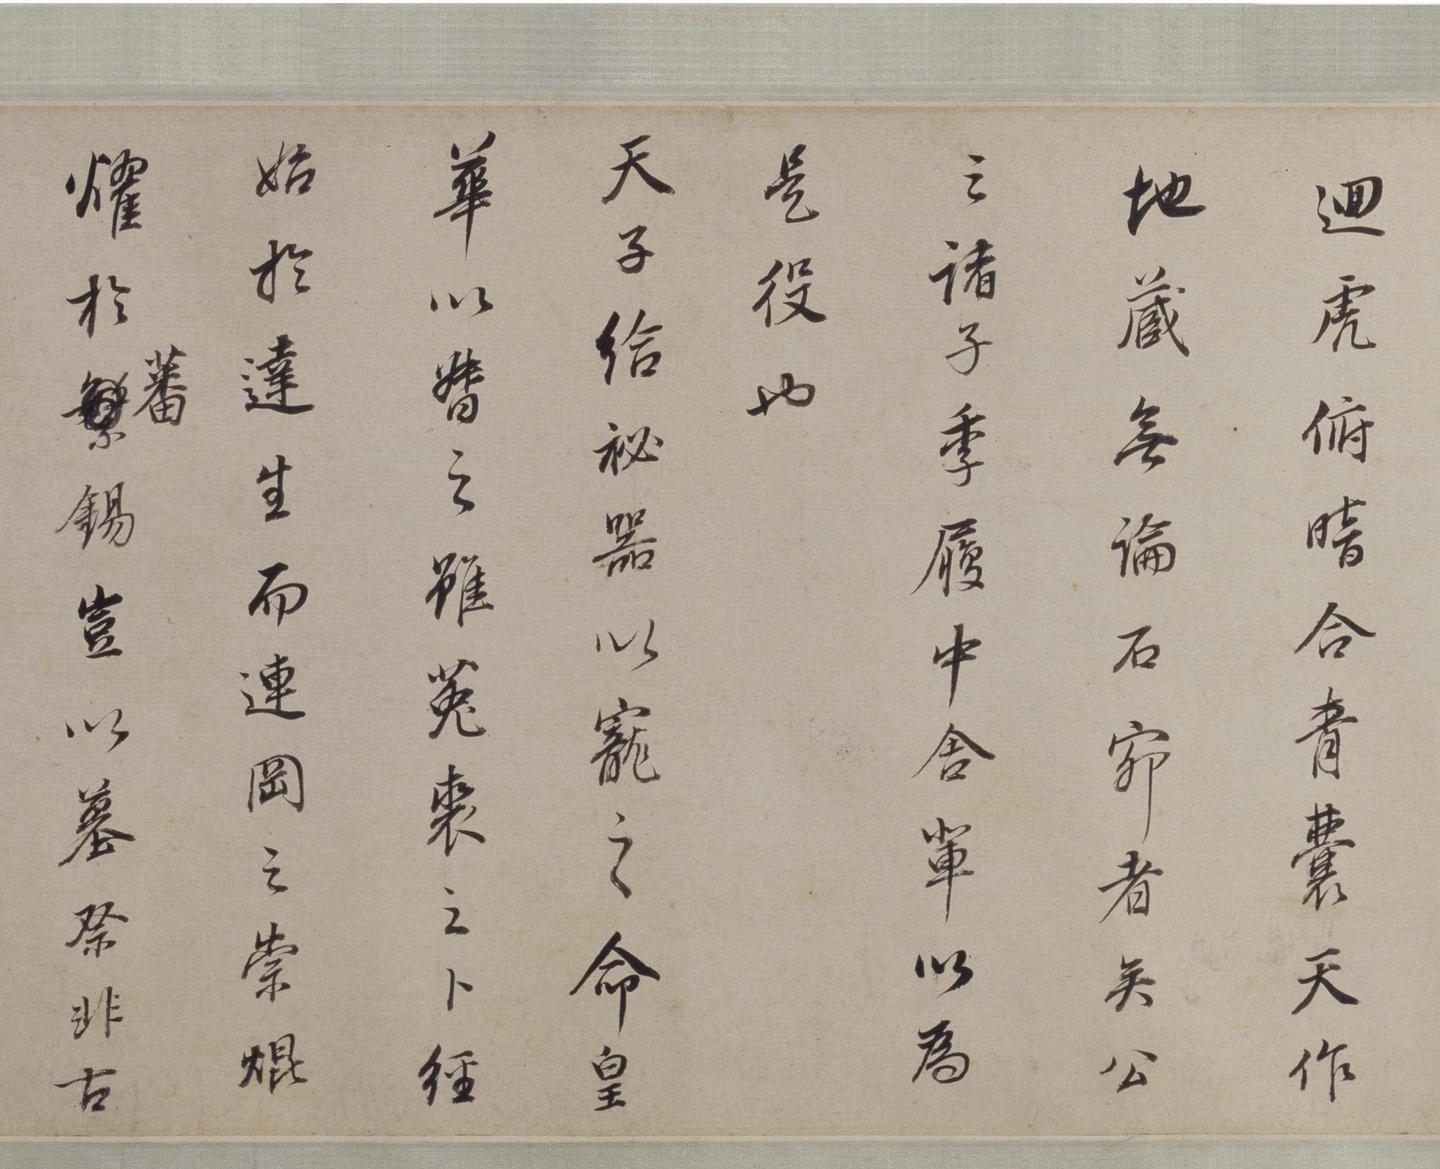 迴虎俯暗合青囊天作
地蔵無論石窌者矣公
之諸子季履中舍軰以為
是役也
天子給祕器以寵之命皇
華以督之雖菟裘之卜經
始於達生而連岡之崇焜
蕃
燿於繁錫豈以墓祭非古